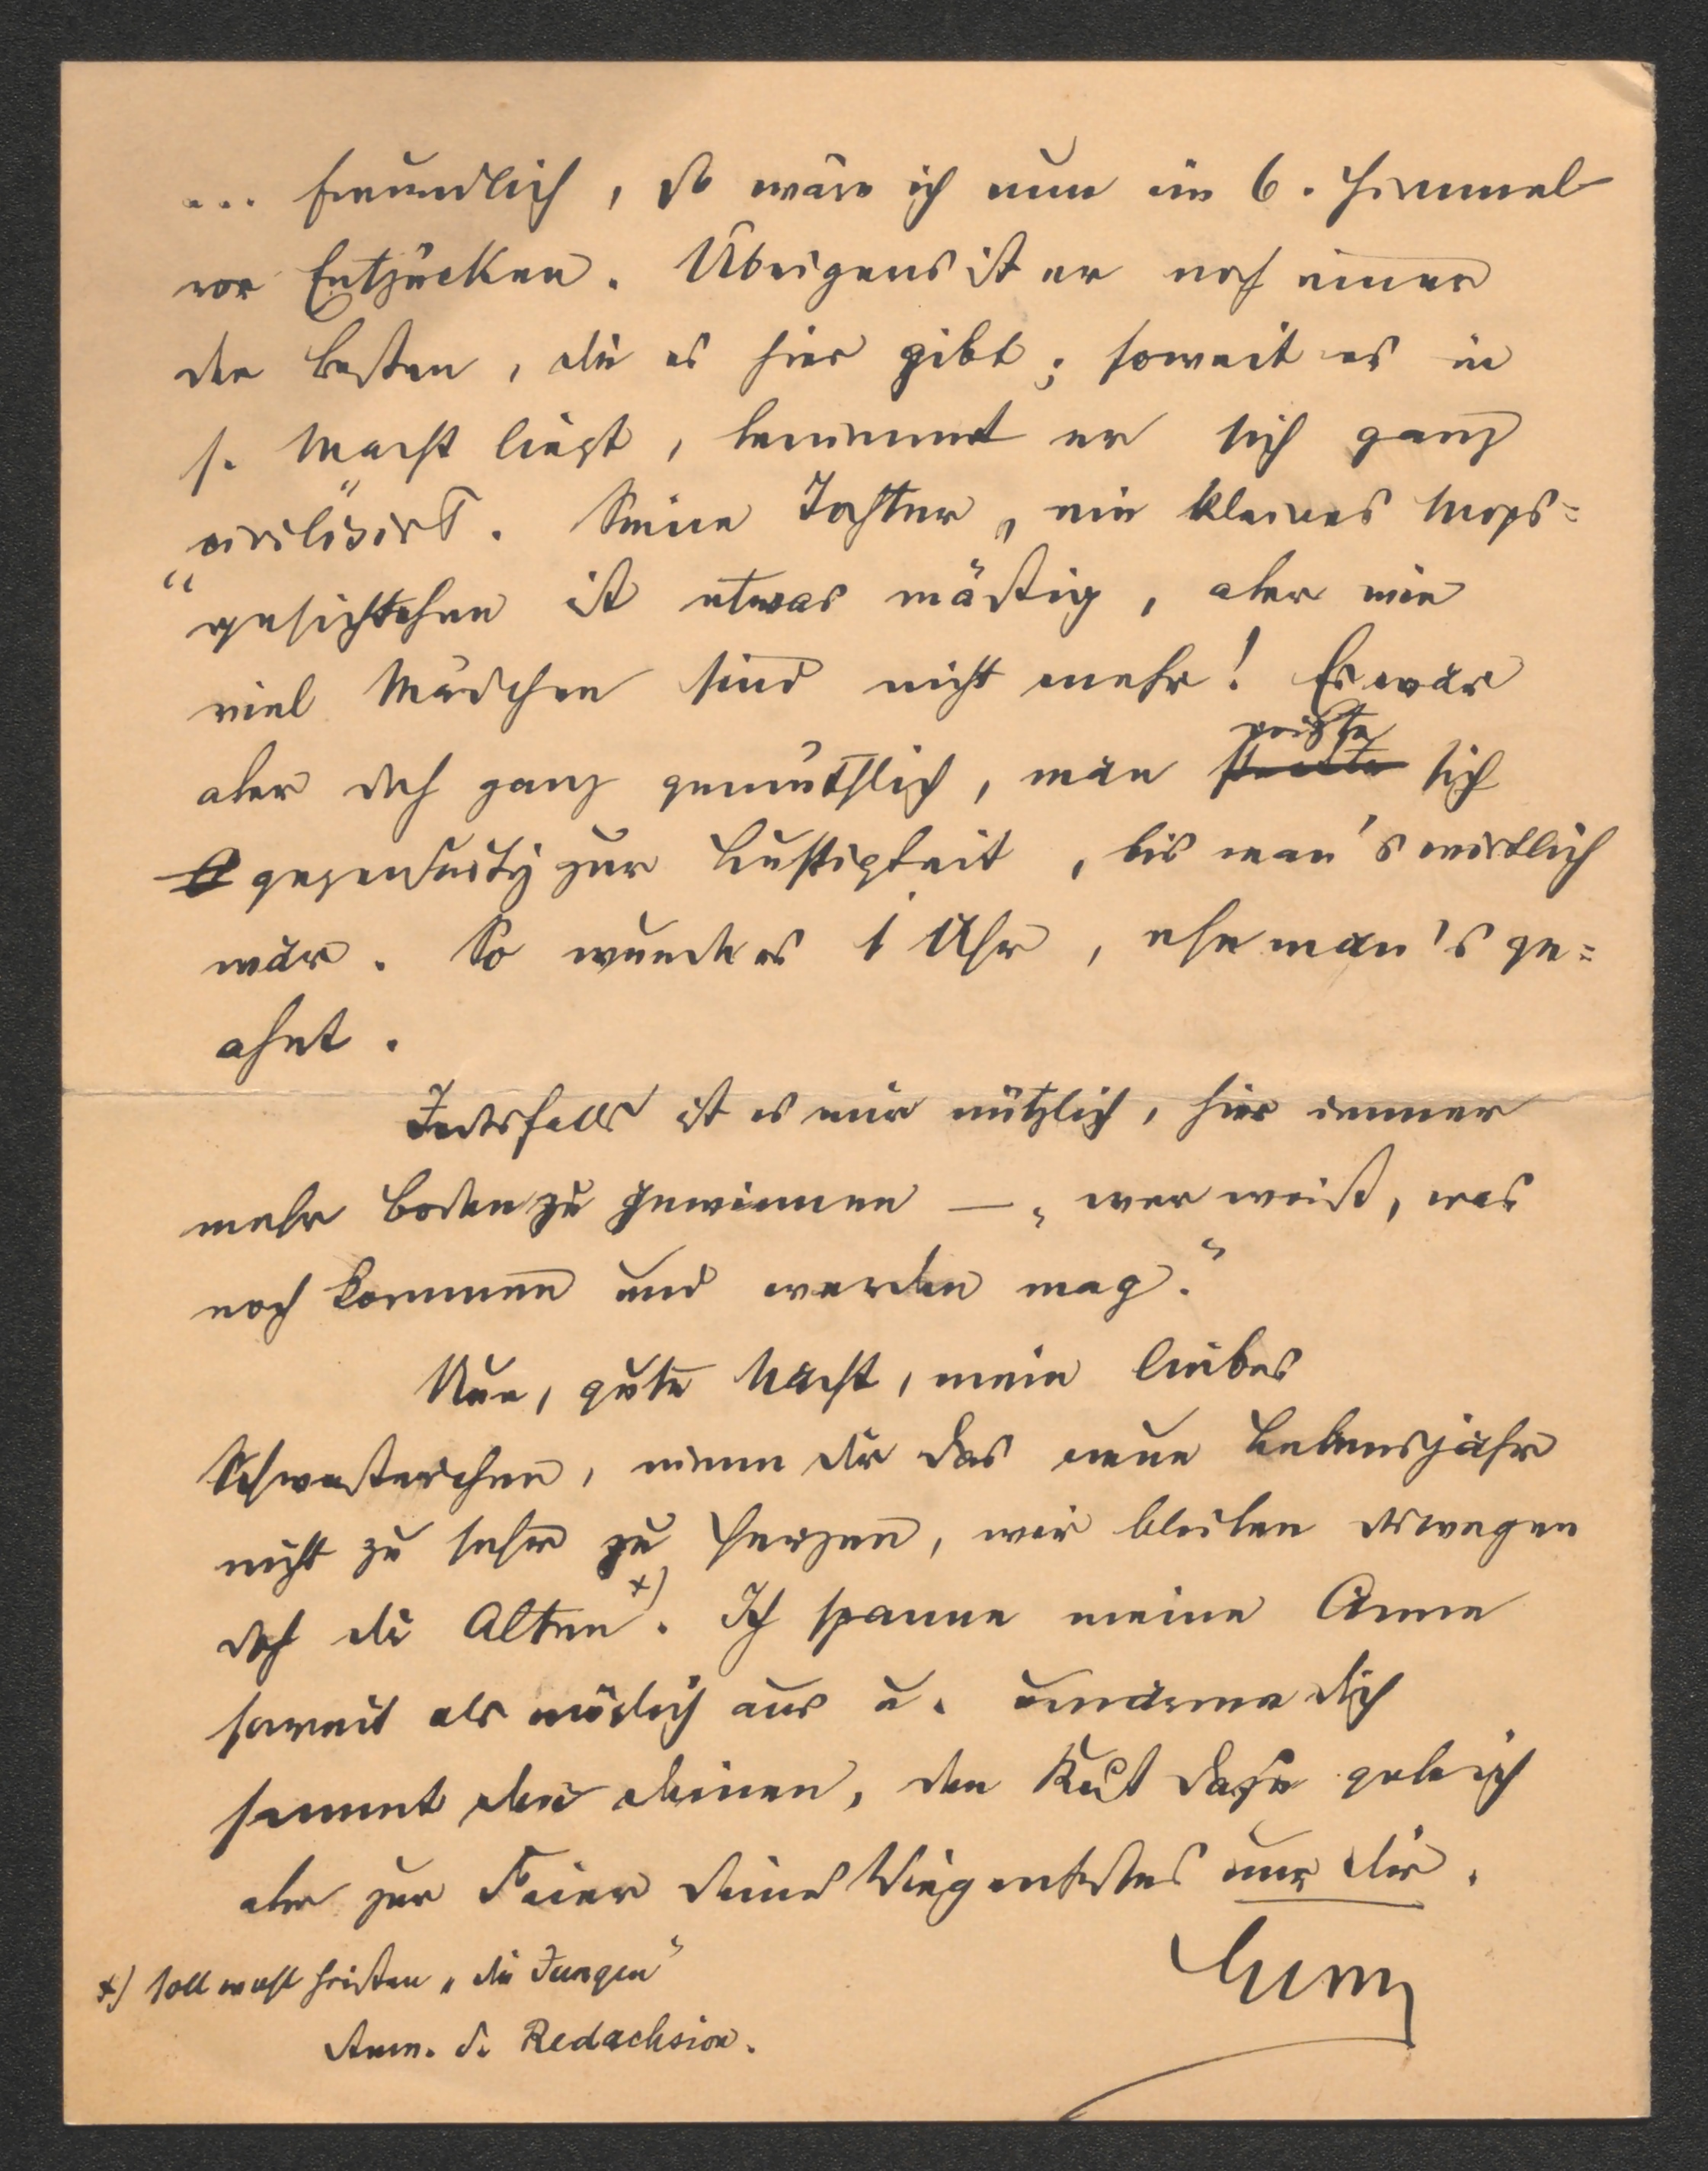 ... freundlich, so wäre ich nun im 6. Himmel
vor Entzücken. Übrigens ist er noch einer
der besten, die es hier gibt; soweit es in
s. Macht liegt, benimmt er sich ganz
"civilisirt". Seine Tochter, ein kleines Mops=
gesichtchen ist etwas mästig, aber wie
viel Mädchen sind nicht mehr! Es war
aber doch ganz gemüthlich, man reizte sich
gegenseitig zur Lustigkeit, bis man's wirklich
war. So wurde es 1 Uhr, ehe man's ge=
ahnt.
Jedesfalls ist es mir nützlich, hier immer
mehr Boden zu gewinnen — „wer weiß, was
noch kommen und werden mag."
Nun, gute Nacht, mein liebes
Schwesterchen, nimm dir das neue Lebensjahr
nicht zu sehr zu Herzen, wir bleiben deswegen
doch die Alten *). Ich spanne meine Arme
soweit als möglich aus u. umarme dich
sammt den deinen, den Kuß dafür geb ich
aber zur Feier deines Wiegenfestes nur dir.
*) Soll wohl heißen „die Jungen"
Anm. d. Redacksion.